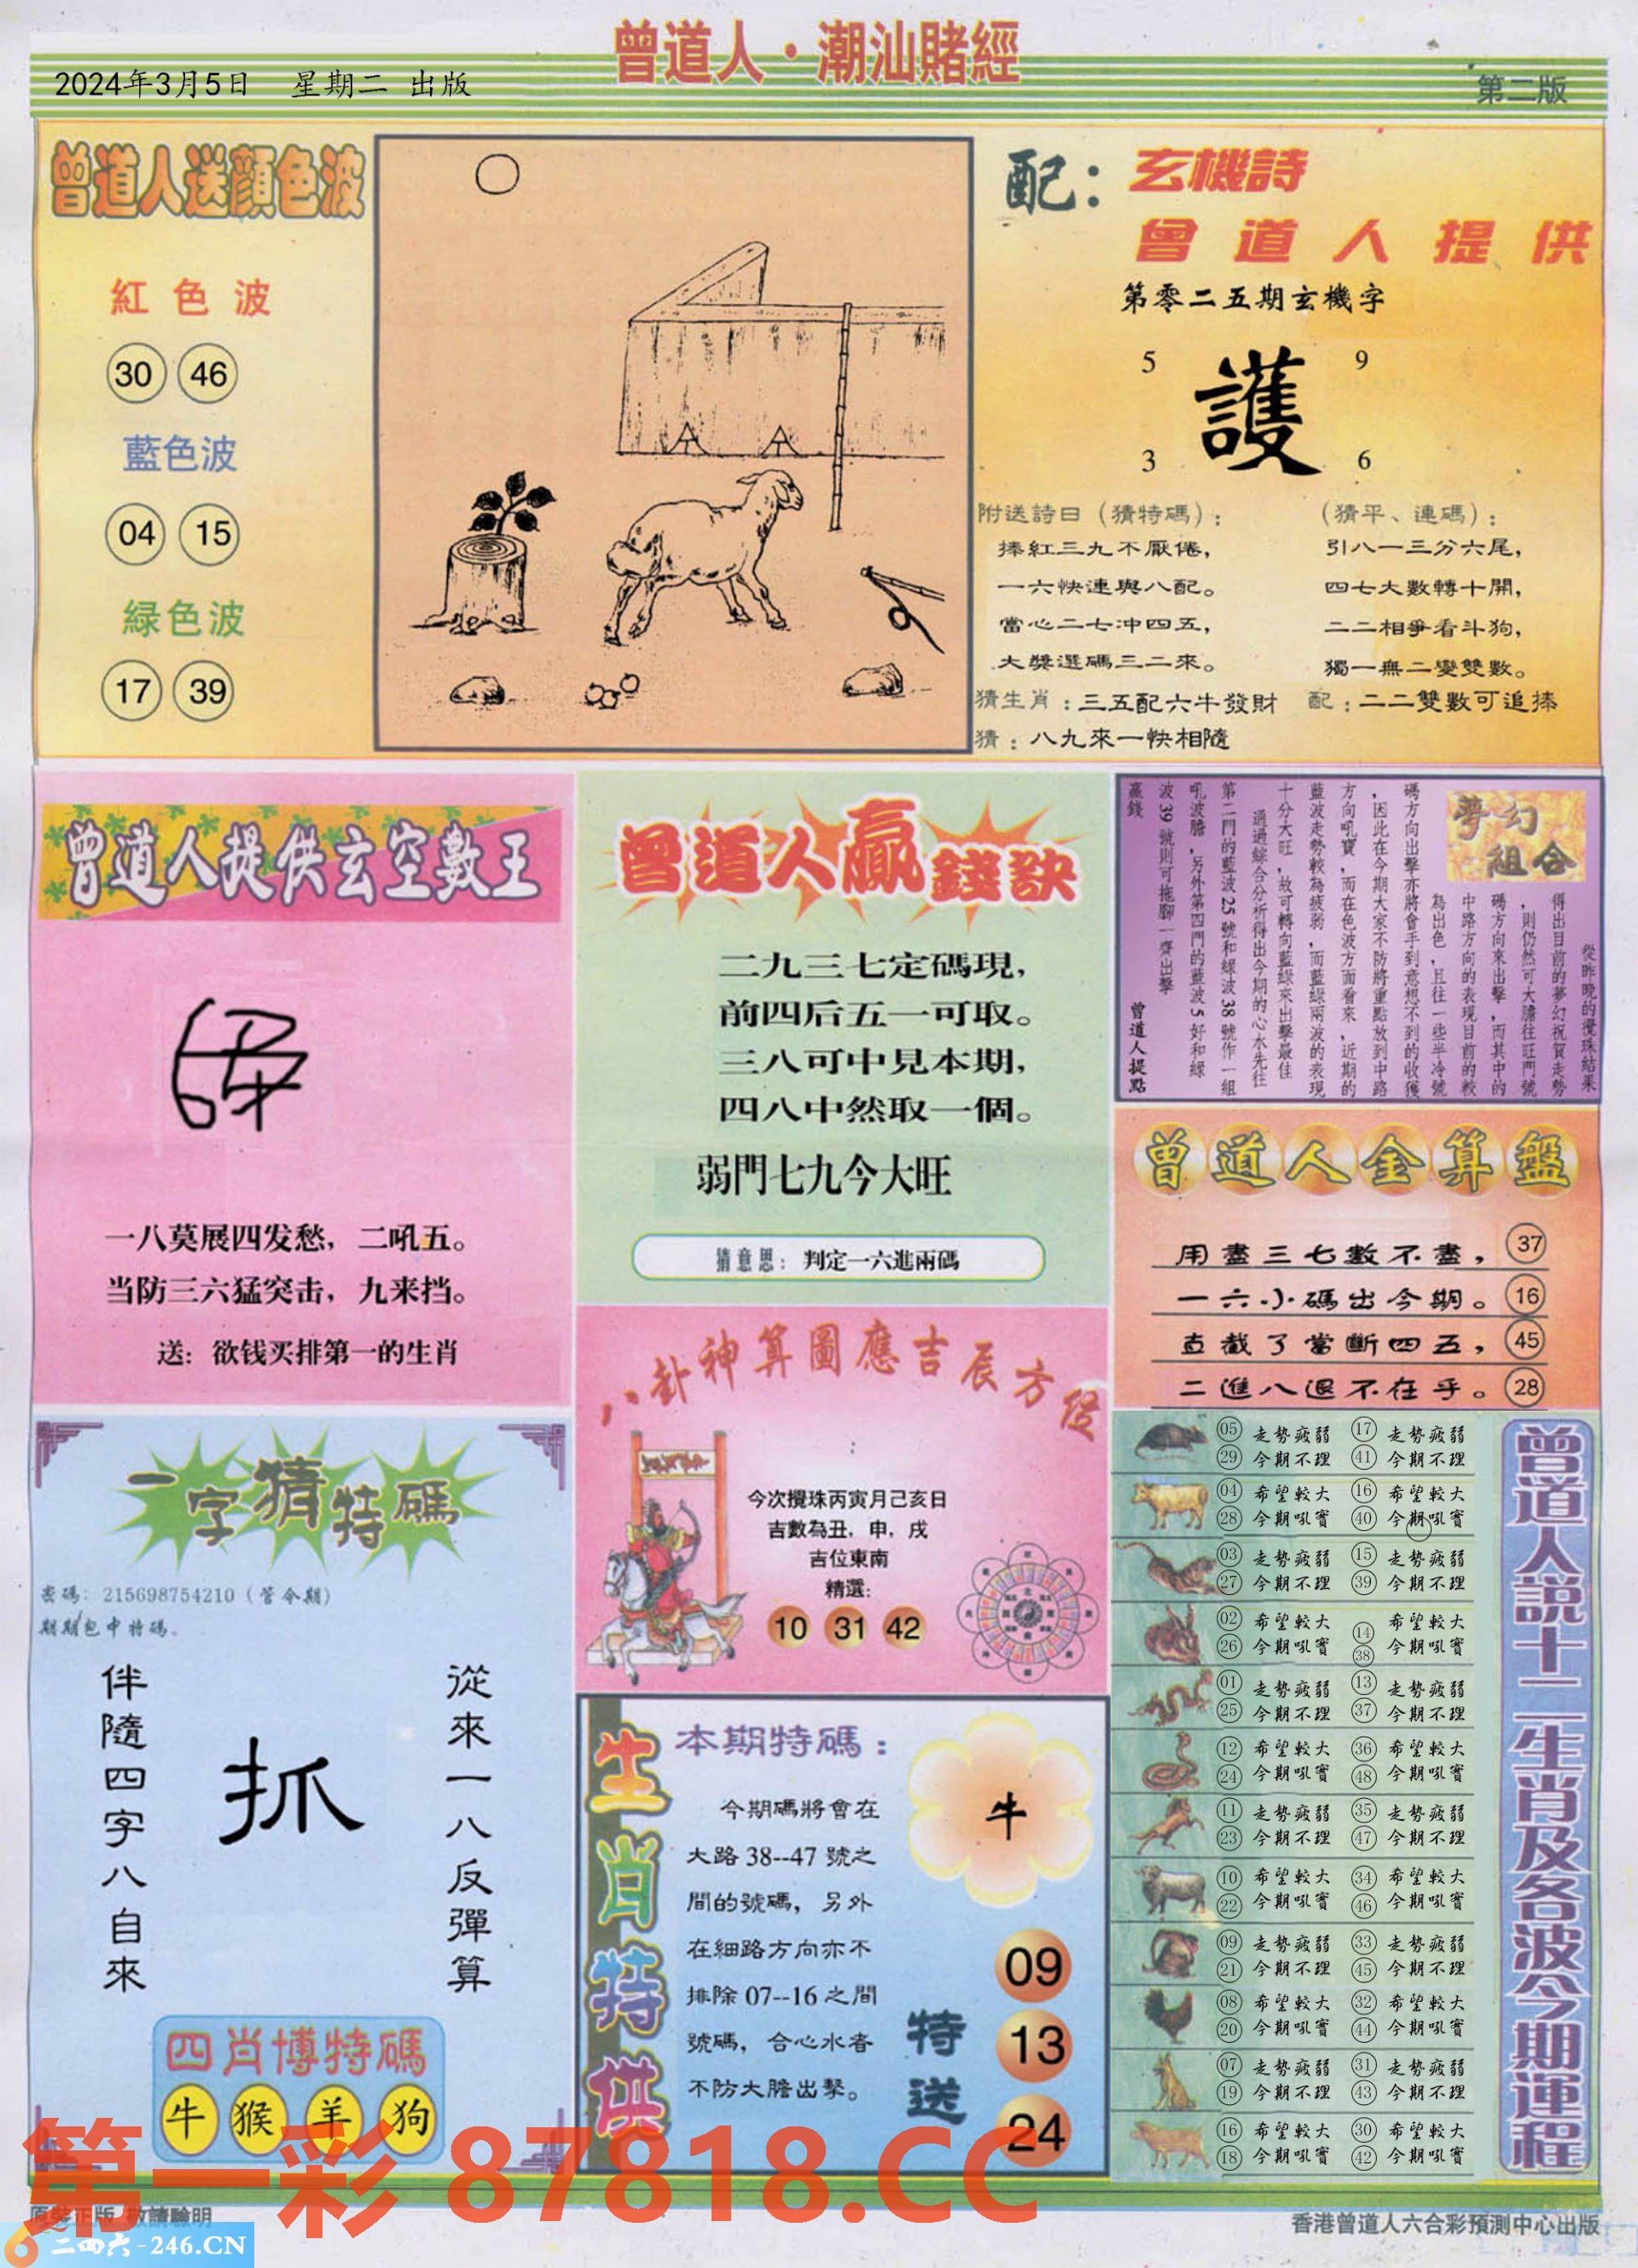 曾道人·潮汕賭經
2024年3月5日 星期二 出版
第二版
曾道人送顏色波
紅色波
30 46
藍色波
04 15
緑色波
17 39
配：玄機詩
曾道人提供
第零二五期玄機字
5 9
護
3 6
附送詩日（猜特碼）：
捧紅三九不厭倦，
一六快連與八配。
當心二七冲四五，
大獎選碼三二來。
（猜平、連碼）：
引八一三分六尾，
四七大數轉十開，
二二相爭看斗狗，
獨一無二變雙數。
猜生肖：三五配六牛發財
配：二二雙數可追捧
猜：八九來一快相隨
曾道人提供玄空數王
一八莫展四发愁，二吼五。
当防三六猛突击，九来挡。
送：欲钱买排第一的生肖
曾道人贏錢訣
二九三七定碼現，
前四后五一可取。
三八可中見本期，
四八中然取一個。
弱門七九今大旺
猜意思：判定一六進兩碼
夢幻組合
從昨晚的攪珠結果
得出目前的夢幻祝賀走勢
，則仍然可大膽往旺門號
碼方向來出擊，而其中的
中路方向的表現目前的較
為出色，且往一些半冷號
碼方向出擊亦將會手到意想不到的收獲
，因此在今期大家不防將重點放到中路
方向吼寶，而在色波方面看來，近期的
藍波走勢較為疲弱，而藍綠兩波的表現
十分大旺，故可轉向藍綠來出擊最佳
通過綜合分析得出今期的心水先往
第二門的藍波25號和綠波38號作一組
吼波膽，另外第四門的藍波5好和綠
波39號則可拖腳一齊出擊
贏錢
曾道人提點
曾道人金算盤
用盡三七數不盡，37
一六小碼出今期。16
直截了當斷四五，45
二進八退不在乎。28
八卦神算圖應吉辰方位
今次攪珠丙寅月己亥日
吉數為丑，申，戌
吉位東南
精選：
10 31 42
一字猜特碼
密碼：215698754210（管今期）
期期包中特碼。
從來一八反彈算
抓
伴隨四字八自來
四肖博特碼
牛 猴 羊 狗
生肖特供
本期特碼：
今期碼將會在
大路38--47號之
間的號碼，另外
在細路方向亦不
排除07--16之間
號碼，合心水者
不防大膽出擊。
牛
特送
09
13
24
曾道人說十二生肖及各波今期運程
05 走勢疲弱 17 走勢疲弱
29 今期不理 41 今期不理
04 希望較大 16 希望較大
28 今期吼寶 40 今期吼寶
03 走勢疲弱 15 走勢疲弱
27 今期不理 39 今期不理
02 希望較大 14 希望較大
26 今期吼寶 38 今期吼寶
01 走勢疲弱 13 走勢疲弱
25 今期不理 37 今期不理
12 希望較大 36 希望較大
24 今期吼寶 48 今期吼寶
11 走勢疲弱 35 走勢疲弱
23 今期不理 47 今期不理
10 希望較大 34 希望較大
22 今期吼寶 46 今期吼寶
09 走勢疲弱 33 走勢疲弱
21 今期不理 45 今期不理
08 希望較大 32 希望較大
20 今期吼寶 44 今期吼寶
07 走勢疲弱 31 走勢疲弱
19 今期不理 43 今期不理
16 希望較大 30 希望較大
18 今期吼寶 42 今期吼寶
第一彩 87818.CC
原裝正版 敬請驗明
二四六-246.CN
香港曾道人六合彩預測中心出版